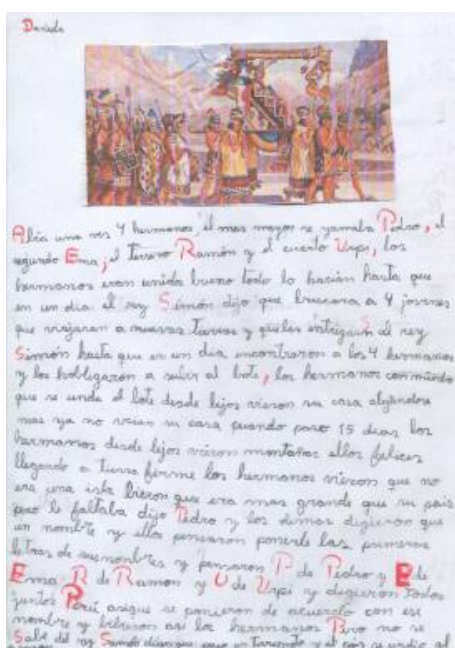 Daniela
Abia una ves 4 hermanos, el mas mayor se yamaba Pedro, el
segundo Ema, el tersero Ramón y el cuarto Urpi, los
hermanos eran unido bueno todo lo hacian hasta que
en un dia el rey Simón dijo que a 4 jovenes
que viajaran a nuevas tierras y que las al rey
Simón hasta que en un dia encontraron a los 4 hermanos
y los hobligaron a subir al bote, los hermanos con miedo
que se unda el bote desde lejos vieron su casa
mas ya no veian su casa cuando paso 15 dias los
hermanos desde lejos vieron montañas ellos felices
llegando a tierra ferme los hermanos vieron que no
era una isla bieron que era mas grande que su pais
pero le faltaba dijo Pedro y los demas digieron que
un nombre y ellos pensaron ponerle las primeras
letras de sus nombres y pensaron P de Pedro y E de
Ema R de Ramon y U de Urpi y digieron todos
juntos Perú asique se ponieron de acuerdo con ese
nombre y así los hermanos Pero no se
Sabe del rey